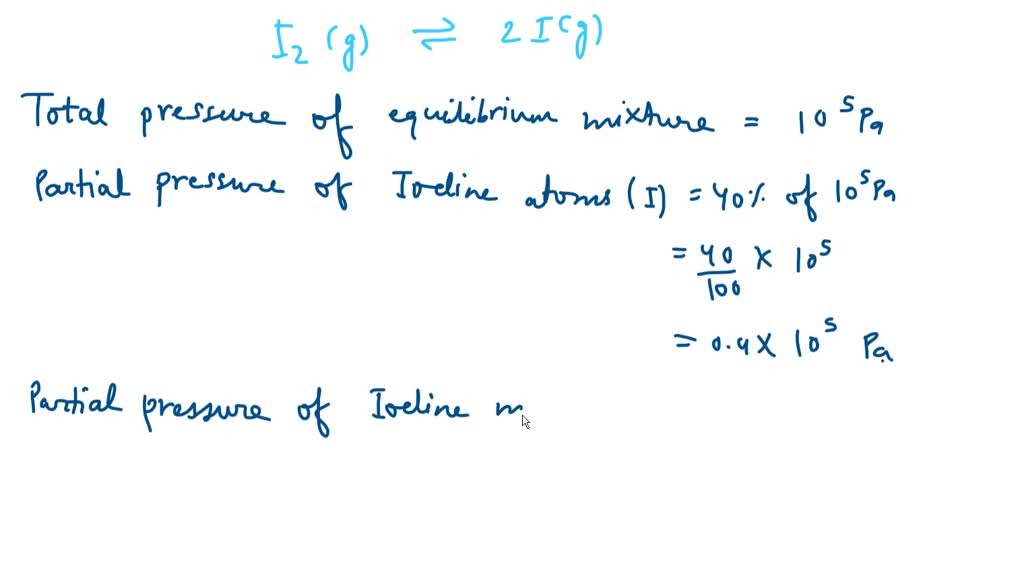 I₂ (g) ⇌ 2 I (g)
Total pressure of equilibrium mixture = 10⁵ Pa
Partial pressure of Iodine atoms (I) = 40% of 10⁵ Pa
= 40/100 × 10⁵
= 0.4 × 10⁵ Pa
Partial pressure of Iodine m